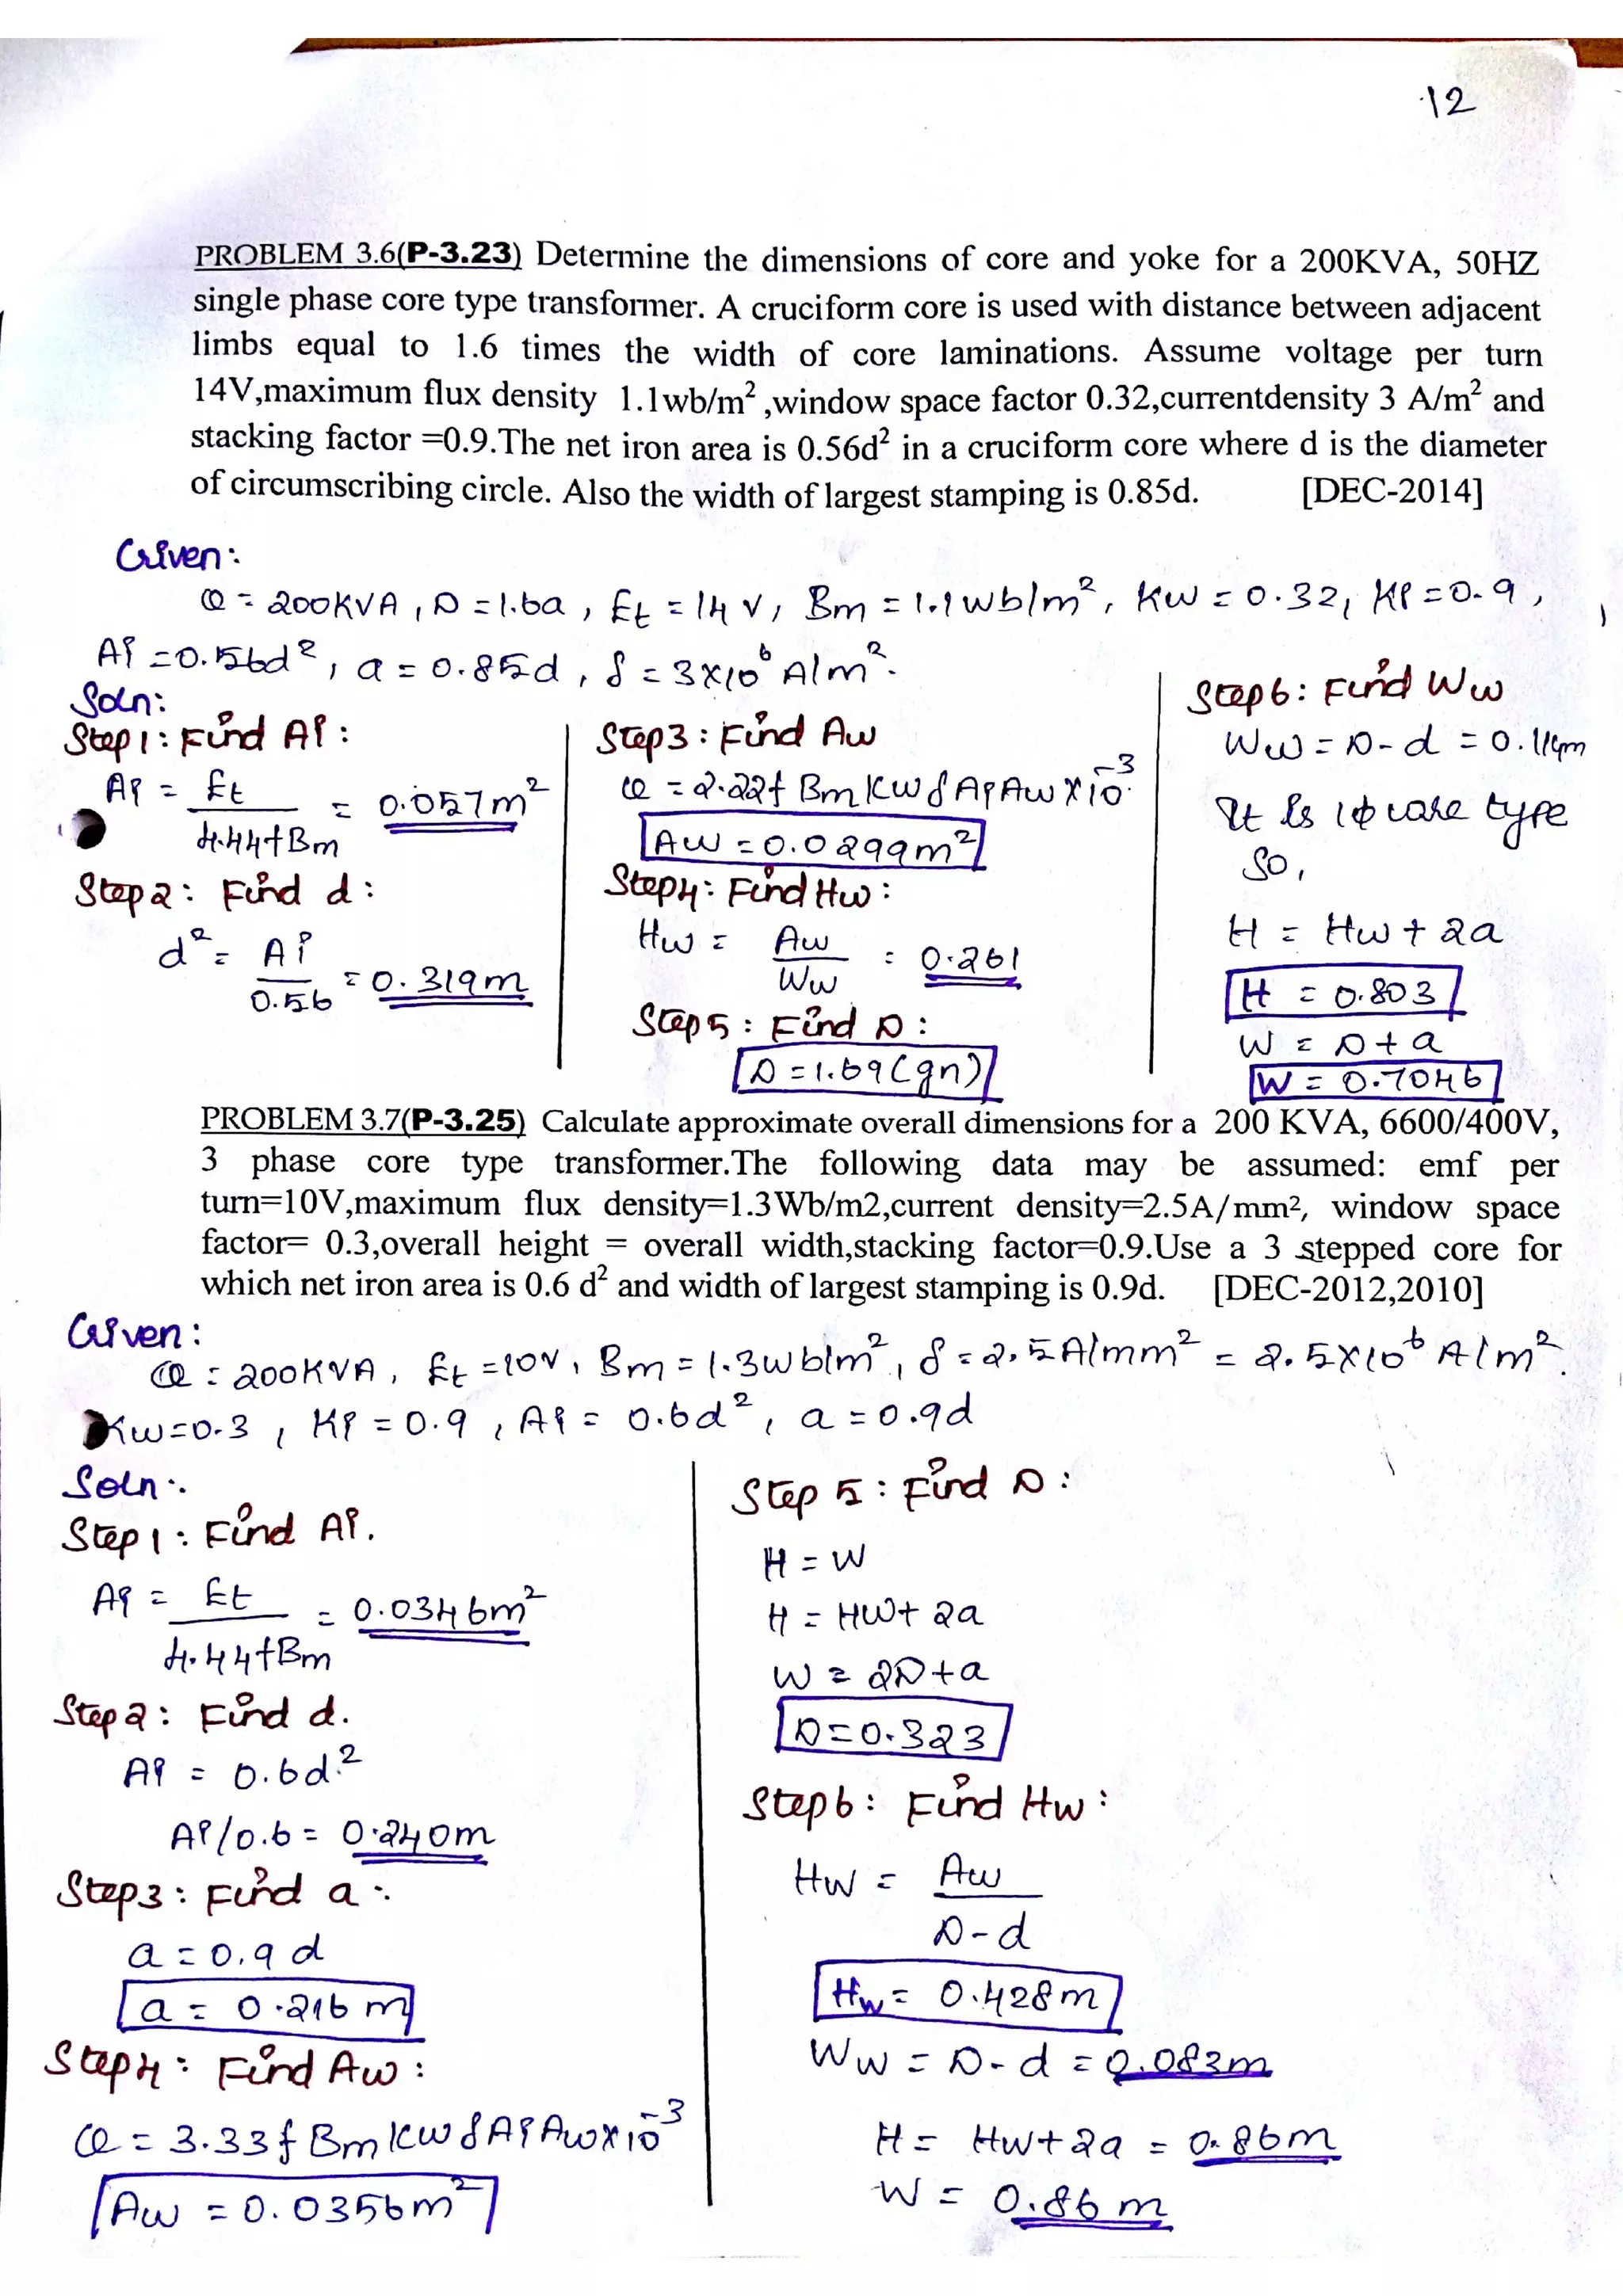 12
PROBLEM 3.6(P-3.23) Determine the dimensions of core and yoke for a 200KVA, 50HZ
single phase core type transformer. A cruciform core is used with distance between adjacent
limbs equal to 1.6 times the width of core laminations. Assume voltage per turn
14V,maximum flux density 1.1wb/m² ,window space factor 0.32,currentdensity 3 A/m² and
stacking factor =0.9.The net iron area is 0.56d² in a cruciform core where d is the diameter
of circumscribing circle. Also the width of largest stamping is 0.85d. [DEC-2014]
Given:
Q = 200KVA, D = 1.6a, Et = 14 V, Bm = 1.1wb/m², Kw = 0.32, Ki = 0.9,
Ai = 0.56d², a = 0.85d, δ = 3×10⁶ A/m².
Soln:
Step 1: Find Ai:
Ai = Et / 4.44fBm = 0.057m²
Step 2: Find d:
d² = Ai / 0.56 = 0.319m
Step 3: Find Aw
Q = 2.22f Bm Kw δ Ai Aw × 10⁻³
Aw = 0.0299m²
Step 4: Find Hw:
Hw = Aw / Ww = 0.261
Step 5: Find D:
D = 1.69(gn)
Step 6: Find Ww
Ww = D - d = 0.114m
It is 1φ core type
So,
H = Hw + 2a
H = 0.803
W = D + a
W = 0.7046
PROBLEM 3.7(P-3.25) Calculate approximate overall dimensions for a 200 KVA, 6600/400V,
3 phase core type transformer.The following data may be assumed: emf per
turn=10V,maximum flux density=1.3Wb/m2,current density=2.5A/mm², window space
factor= 0.3,overall height = overall width,stacking factor=0.9.Use a 3 stepped core for
which net iron area is 0.6 d² and width of largest stamping is 0.9d. [DEC-2012,2010]
Given:
Q = 200KVA, Et = 10V, Bm = 1.3wb/m², δ = 2.5A/mm² = 2.5×10⁶ A/m².
Kw = 0.3, Ki = 0.9, Ai = 0.6d², a = 0.9d
Soln:
Step 1: Find Ai.
Ai = Et / 4.44fBm = 0.0346m²
Step 2: Find d.
Ai = 0.6d²
Ai/0.6 = 0.240m
Step 3: Find a:
a = 0.9 d
a = 0.216 m
Step 4: Find Aw:
Q = 3.33f Bm Kw δ Ai Aw × 10⁻³
Aw = 0.0356m²
Step 5: Find D:
H = W
H = Hw + 2a
W = 2D + a
D = 0.323
Step 6: Find Hw:
Hw = Aw / D - d
Hw = 0.428m
Ww = D - d = 0.083m
H = Hw + 2a = 0.86m
W = 0.86 m